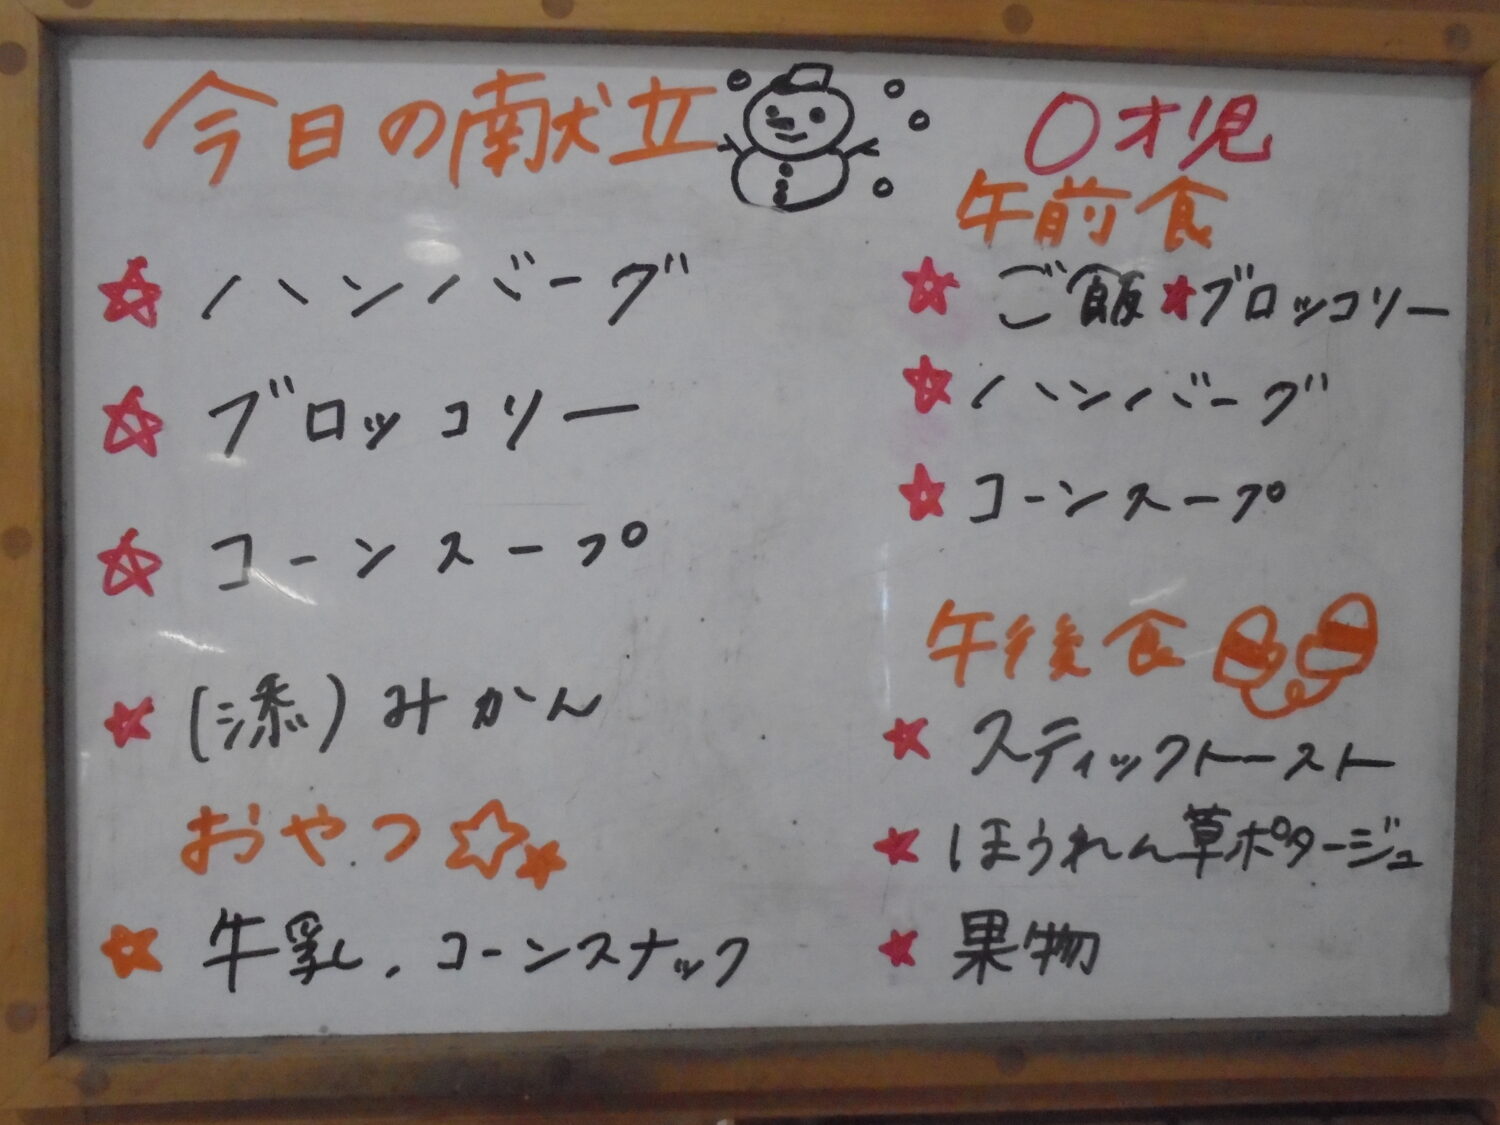 今日の献立
ハンバーグ
ブロッコリー
コーンスープ
(添)みかん
おやつ
牛乳、コーンスナック
0才児
午前食
ご飯★ブロッコリー
ハンバーグ
コーンスープ
午後食
スティックトースト
ほうれん草ポタージュ
果物